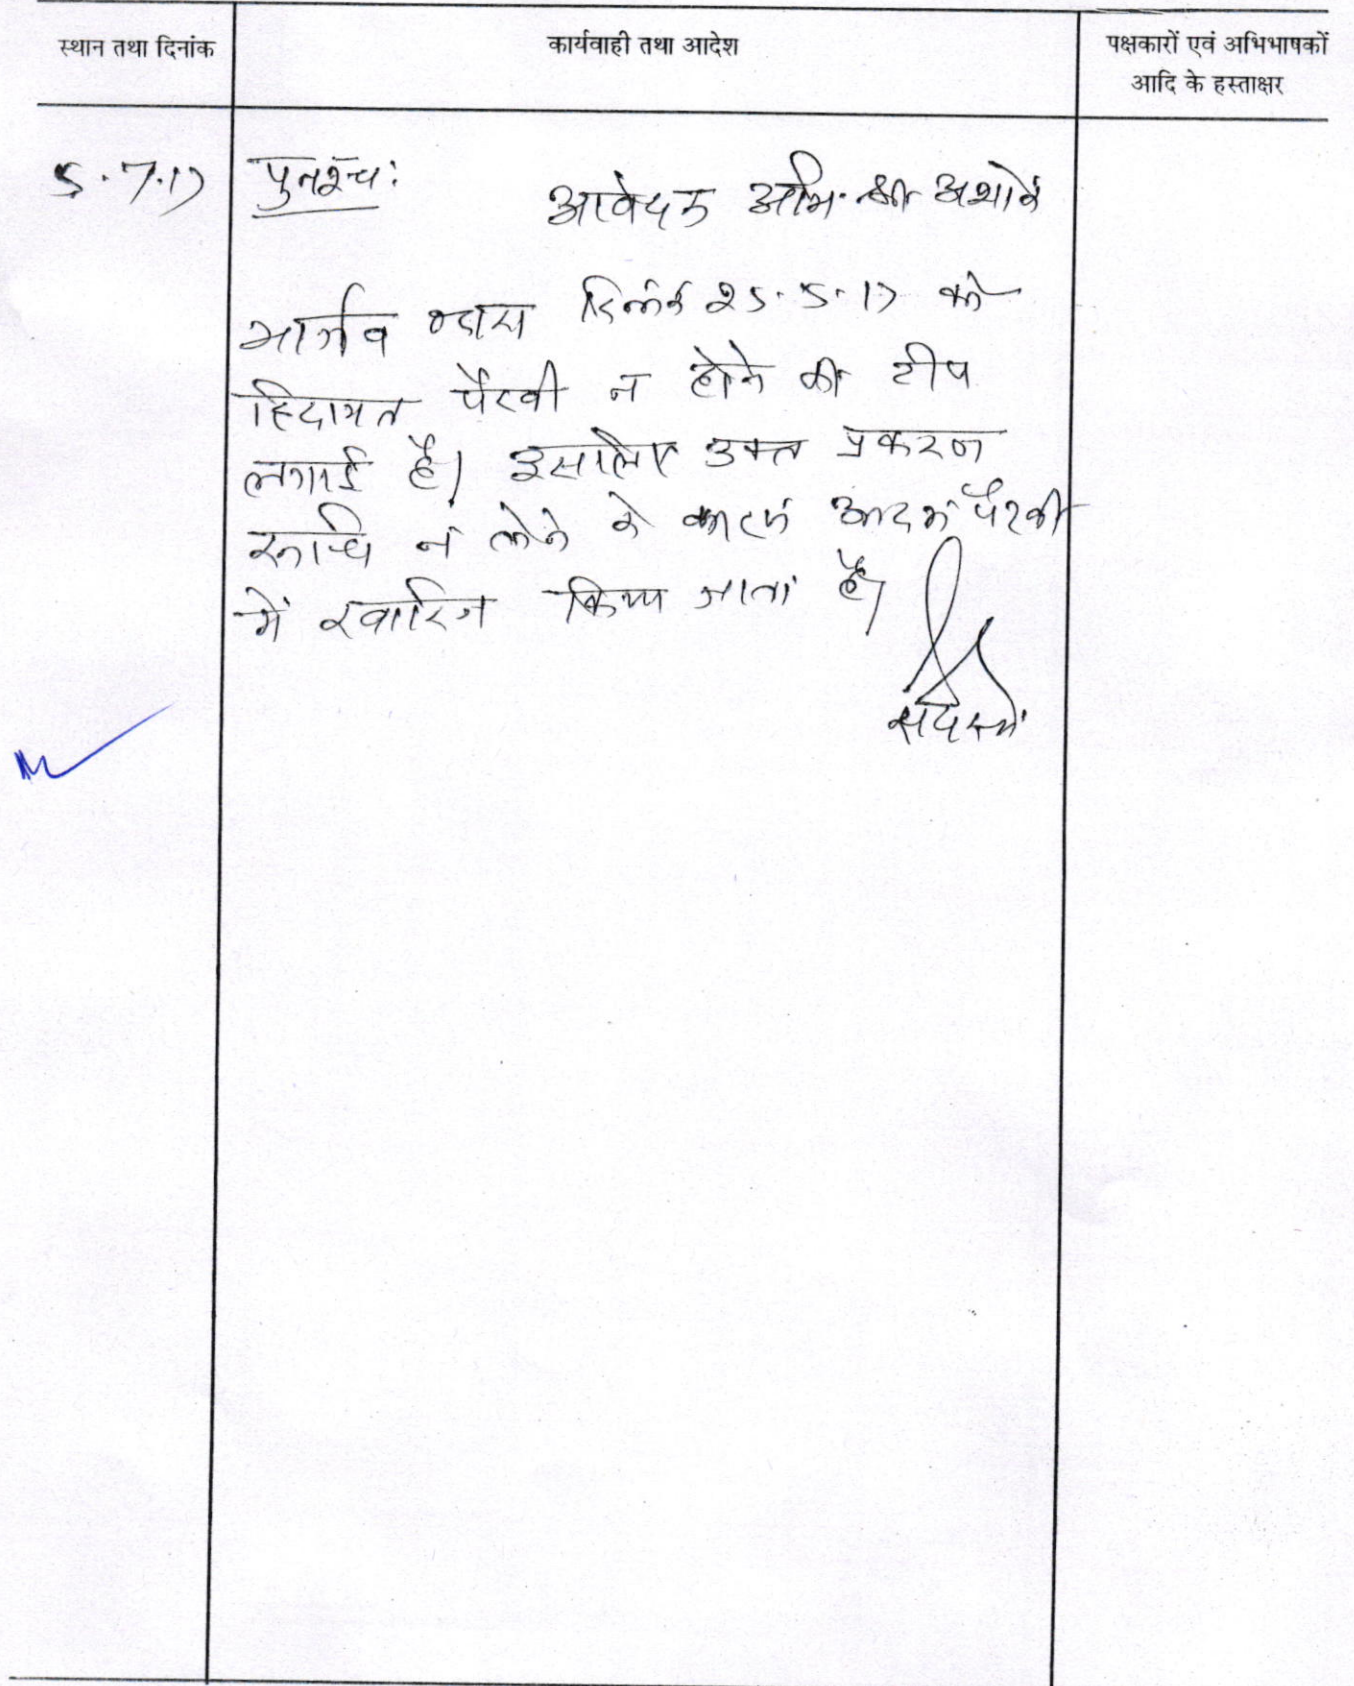 स्थान तथा दिनांक
कार्यवाही तथा आदेश
पक्षकारों एवं अभिभाषकों
आदि के हस्ताक्षर
5.7.17
पुनश्च:
आवेदक अभि. श्री अशोक
भार्गव द्वारा दिनांक 25.5.17 को
हिदायत पैरवी न होने की टीप
लगाई है। इसलिए उक्त प्रकरण
रूचि न लेने के कारण अदम पैरवी
में खारिज किया जाता है।
सदस्य